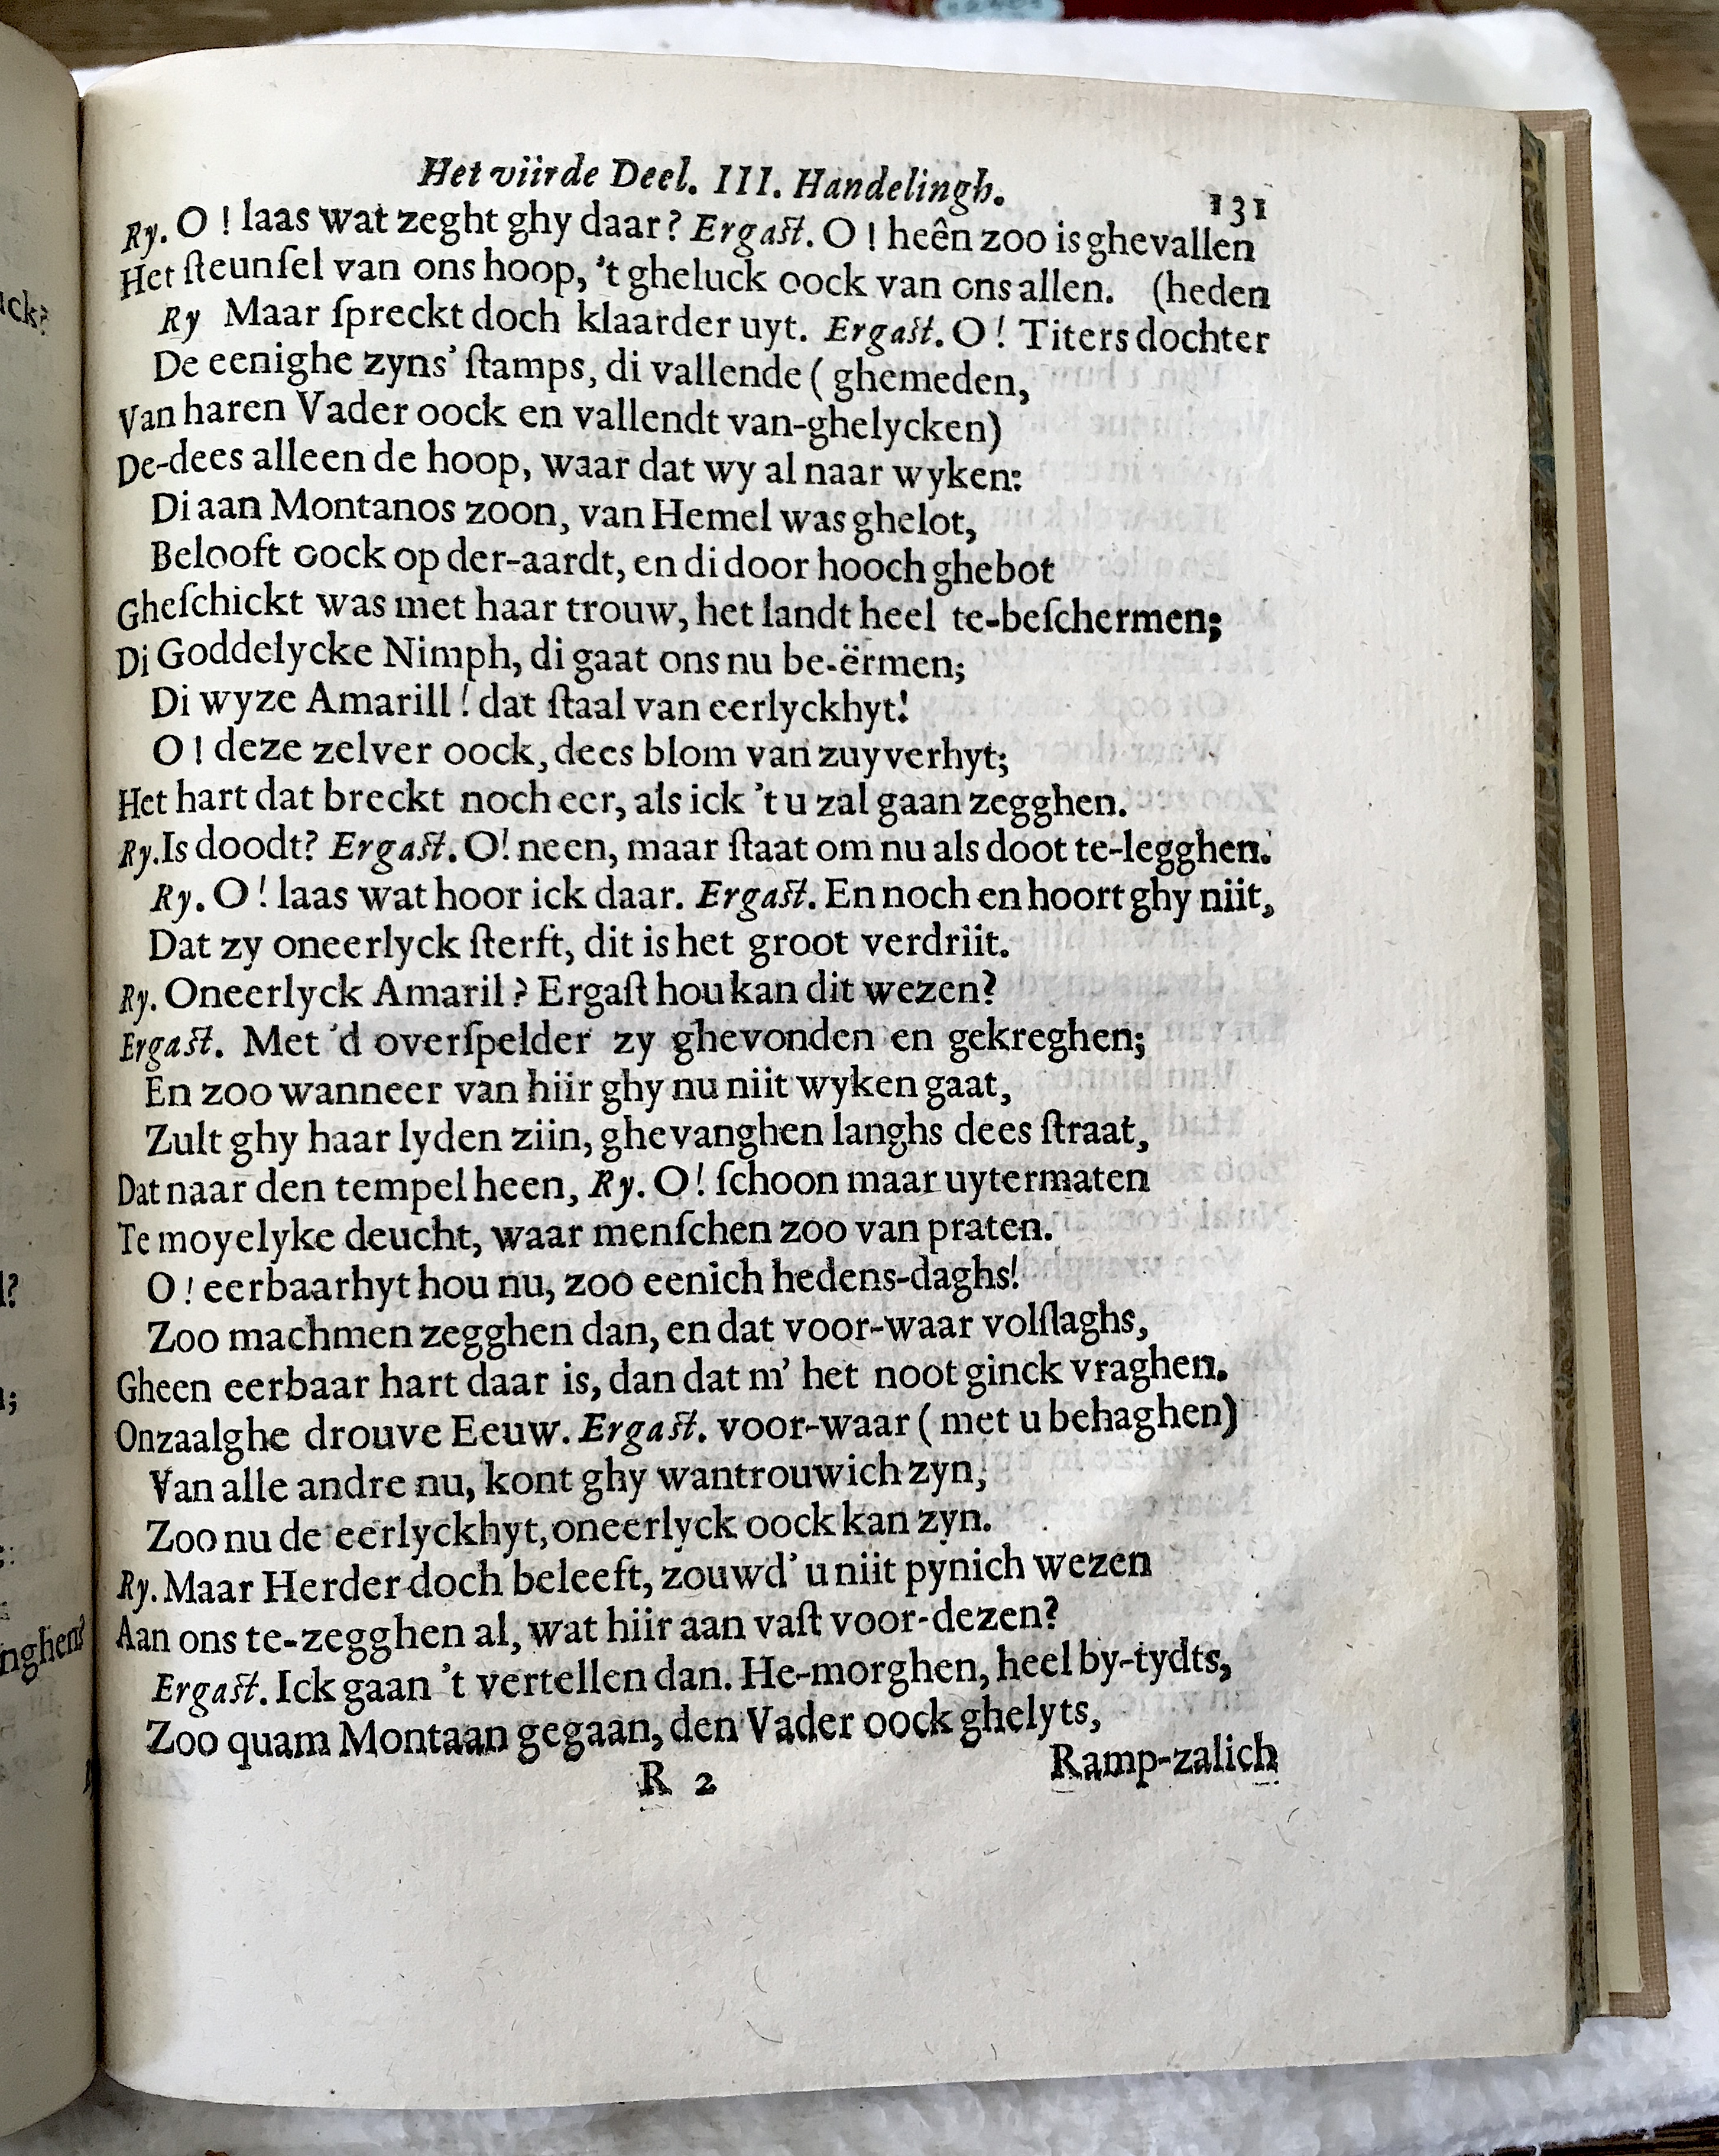 Het viirde Deel. III. Handelingh. 131
Ry. O ! laas wat zeght ghy daar? Ergaſt. O ! heên zoo is ghevallen
Het ſteunſel van ons hoop, 't gheluck oock van ons allen. (heden
Ry Maar ſpreckt doch klaarder uyt. Ergaſt. O! Titers dochter
De eenighe zyns' ſtamps, di vallende ( ghemeden,
Van haren Vader oock en vallendt van-ghelycken)
De-dees alleen de hoop, waar dat wy al naar wyken:
Di aan Montanos zoon, van Hemel was ghelot,
Belooft oock op der-aardt, en di door hooch ghebot
Gheſchickt was met haar trouw, het landt heel te-beſchermen;
Di Goddelycke Nimph, di gaat ons nu be-ërmen;
Di wyze Amarill! dat ſtaal van eerlyckhyt!
O ! deze zelver oock, dees blom van zuyverhyt;
Het hart dat breckt noch eer, als ick 't u zal gaan zegghen.
Ry. Is doodt? Ergaſt. O! neen, maar ſtaat om nu als doot te-legghen.
Ry. O! laas wat hoor ick daar. Ergaſt. En noch en hoort ghy niit,
Dat zy oneerlyck ſterft, dit is het groot verdriit.
Ry. Oneerlyck Amaril? Ergaſt hou kan dit wezen?
Ergaſt. Met 'd overſpelder zy ghevonden en gekreghen;
En zoo wanneer van hiir ghy nu niit wyken gaat,
Zult ghy haar lyden ziin, ghevanghen langhs dees ſtraat,
Dat naar den tempel heen, Ry. O! ſchoon maar uytermaten
Te moyelyke deucht, waar menſchen zoo van praten.
O! eerbaarhyt hou nu, zoo eenich hedens-daghs!
Zoo machmen zegghen dan, en dat voor-waar volſlaghs,
Gheen eerbaar hart daar is, dan dat m' het noot ginck vraghen.
Onzaalghe drouve Eeuw. Ergaſt. voor-waar ( met u behaghen)
Van alle andre nu, kont ghy wantrouwich zyn,
Zoo nu de eerlyckhyt, oneerlyck oock kan zyn.
Ry. Maar Herder doch beleeft, zouwd' u niit pynich wezen
Aan ons te-zegghen al, wat hiir aan vaſt voor-dezen?
Ergaſt. Ick gaan 't vertellen dan. He-morghen, heel by-tydts,
Zoo quam Montaan gegaan, den Vader oock ghelyts,
R 2 Ramp-zalich